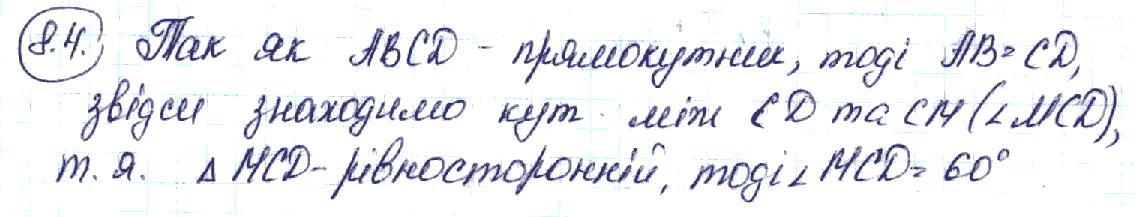 8.4. Так як ABCD - прямокутник, тоді AB=CD,
звідси знаходимо кут між CD та CM (∠MCD),
т.я. △MCD - рівносторонній, тоді ∠MCD = 60°